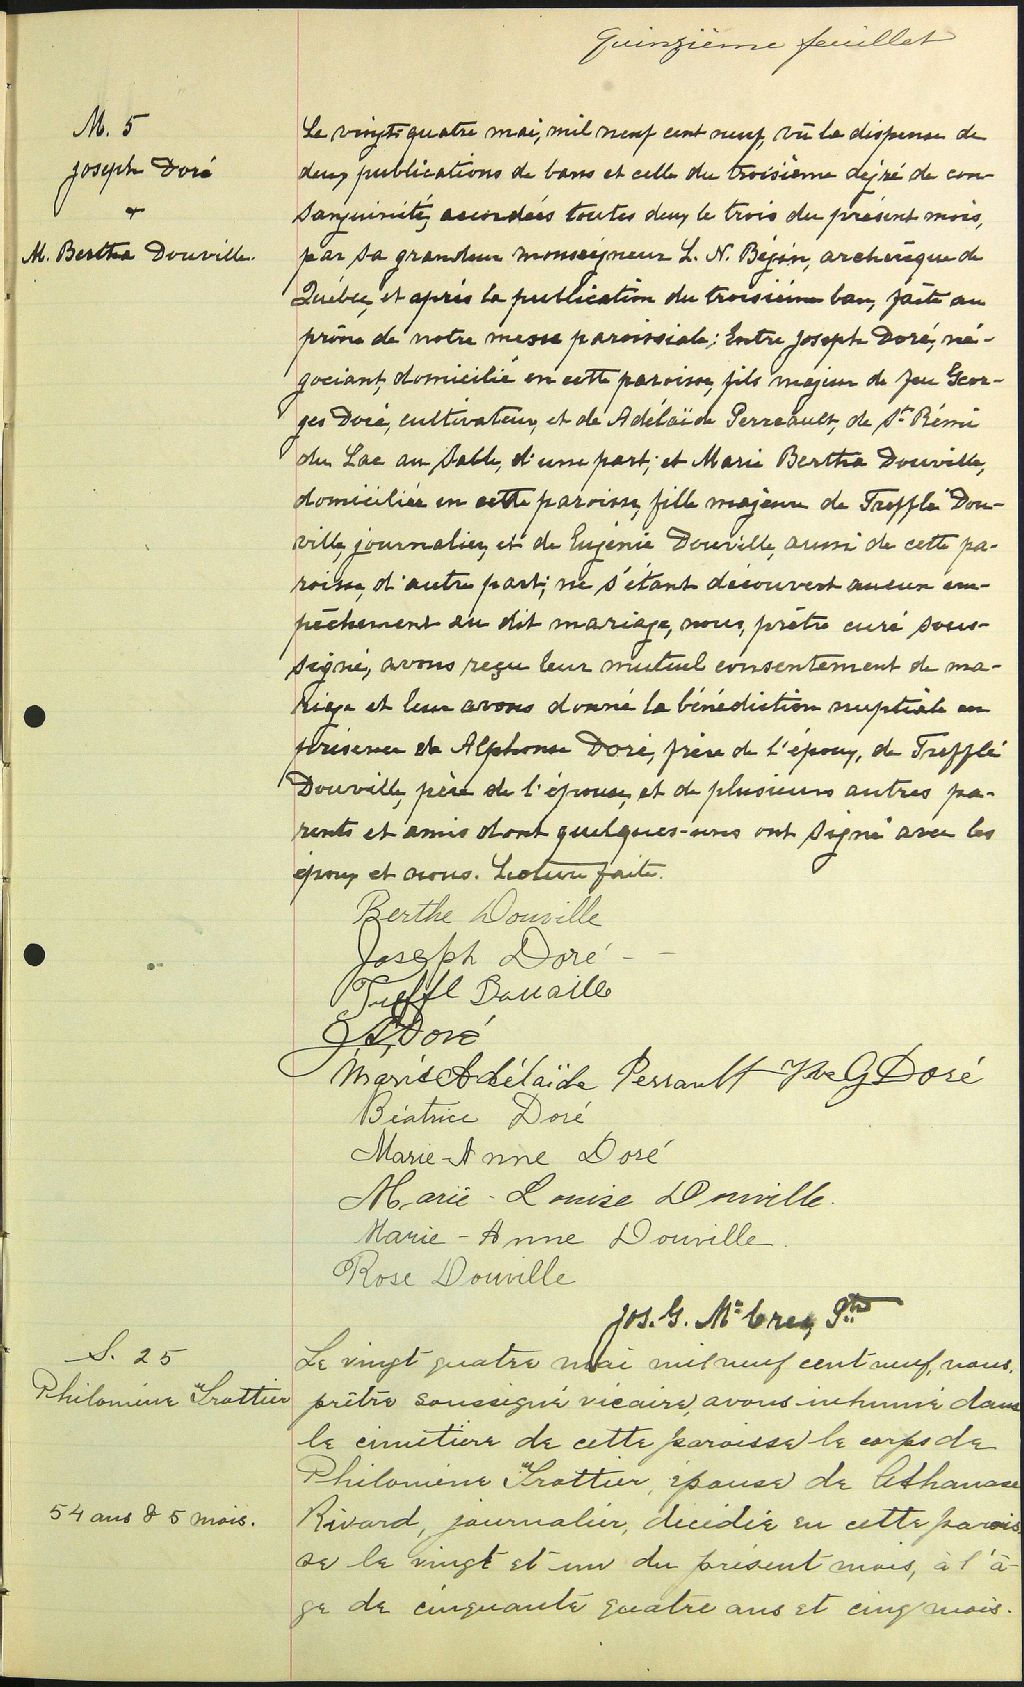 Quinzième feuillet
M. 5
Joseph Doré
&
M. Bertha Douville.
Le vingt-quatre mai, mil neuf cent neuf, vû la dispense de
deux publications de bans et celle du troisième degré de con-
sanguinité, accordées toutes deux le trois du présent mois,
par sa grandeur monseigneur L. N. Bégin, archevêque de
Québec, et après la publication du troisième ban, faite au
prône de notre messe paroissiale; Entre Joseph Doré, né-
gociant, domicilié en cette paroisse, fils majeur de feu Geor-
ges Doré, cultivateur, et de Adélaïde Perreault, de St Rémi
du Lac au Sable, d'une part; et Marie Bertha Douville,
domiciliée en cette paroisse, fille majeure de Trefflé Dou-
ville, journalier, et de Eugénie Douville, aussi de cette pa-
roisse, d'autre part; ne s'étant découvert aucun em-
pêchement au dit mariage, nous, prêtre curé sous-
signé, avons reçu leur mutuel consentement de ma-
riage et leur avons donné la bénédiction nuptiale en
présence de Alphonse Doré, frère de l'époux, de Trefflé
Douville, père de l'épouse, et de plusieurs autres pa-
rents et amis dont quelques-uns ont signé avec les
époux et nous. Lecture faite.
Berthe Douville
Joseph Doré
Treffl Douville
J. A. Doré
Marie Adélaïde Perrault Vve G Doré
Béatrice Doré
Marie-Anne Doré
Marie-Louise Douville.
Marie-Anne Douville.
Rose Douville
Jos. G. Mc Crea, Ptre
S. 25
Philomène Trottier
54 ans & 5 mois.
Le vingt quatre mai mil neuf cent neuf, nous,
prêtre soussigné vicaire, avons inhumé dans
le cimetière de cette paroisse le corps de
Philomène Trottier, épouse de Athanase
Rivard, journalier, décédée en cette parois
se le vingt et un du présent mois, à l'â-
ge de cinquante quatre ans et cinq mois.